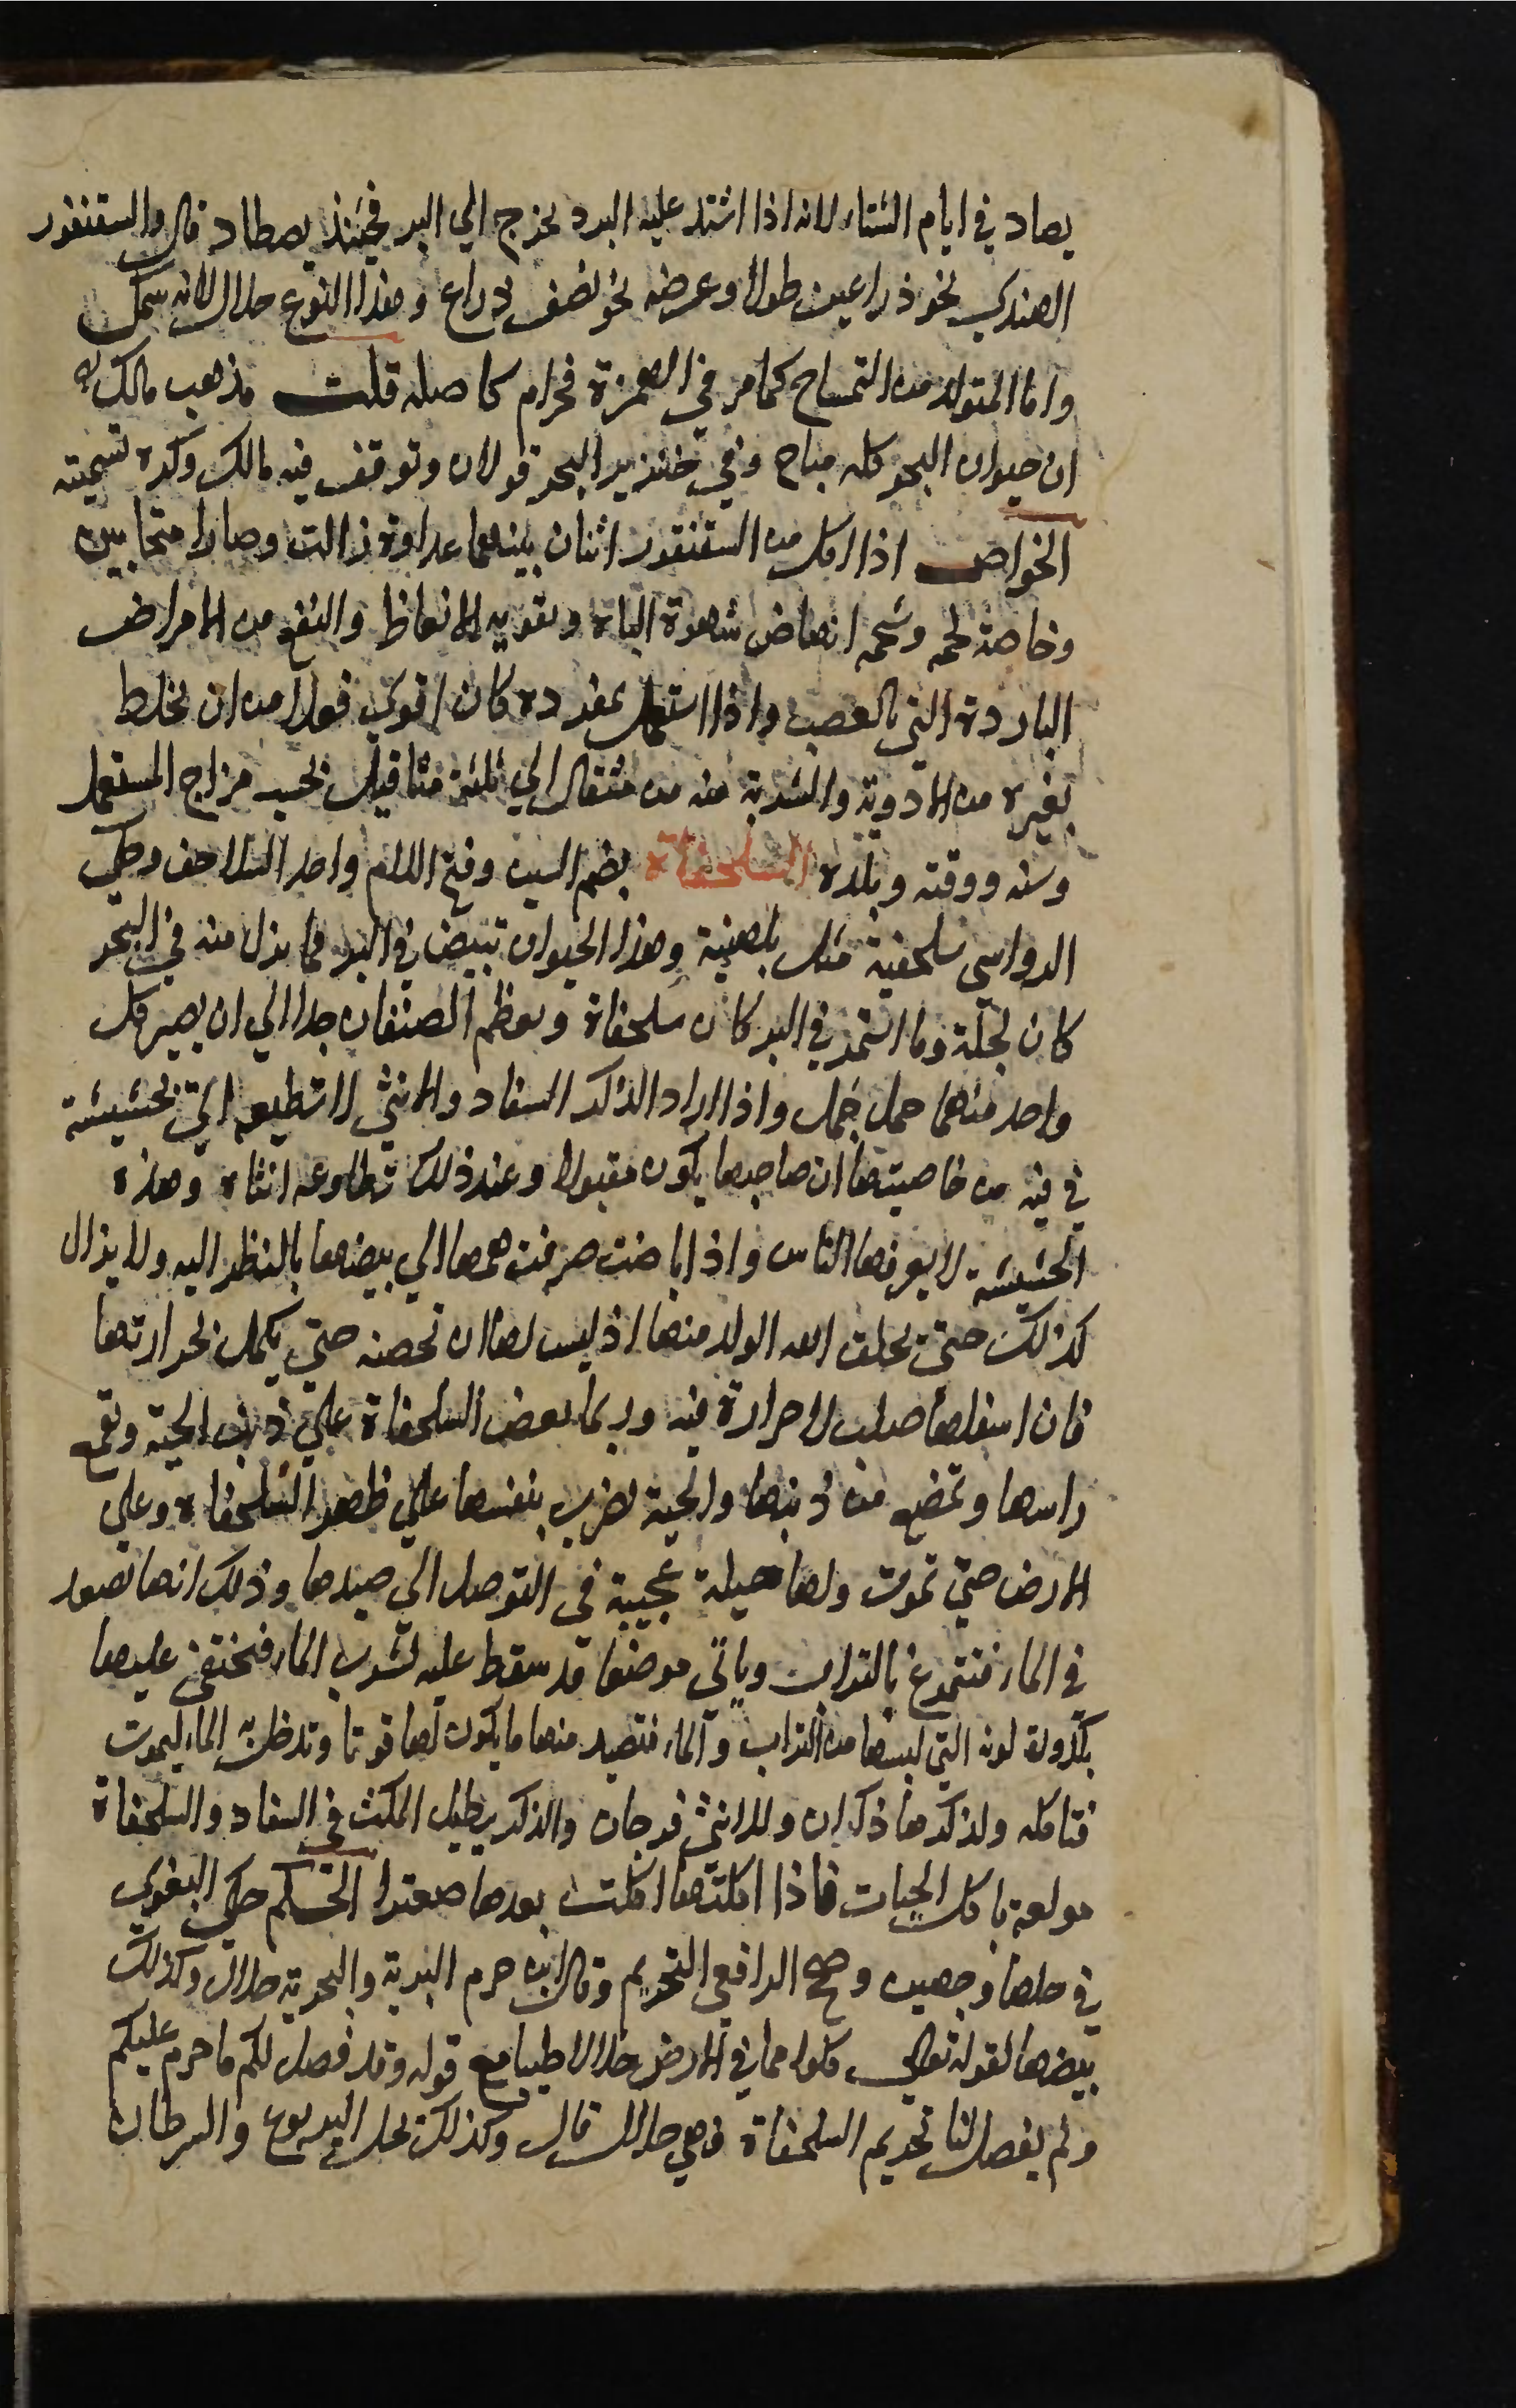 يصاد في ايام الشتاء لانه اذا اشتد عليه البرد يخرج الي البر فحينئذ يصطاد قال والسقنقور
الهندي نحو ذراعين طولا وعرضه نحو نصف ذراع وهذا النوع حلال لانه سمك
واما المتولد من التمساح كما مر في الهمزة فحرام كاصله قلت مذهب مالك
ان حيوان البحر كله مباح وفي خنزير البحر قولان وتوقف فيه مالك وكره تسميته
الخواص اذا اكل من السقنقور اثنان بينهما عداوة زالت وصارا متحابين
وخاصة لحمه وشحمه انهاض شهوة الباه وتقوية الانعاظ والنفع من الامراض
الباردة التي بالعصب واذا استعمل بمفرده كان اقوي فعلا من ان يخلط
بغيره من الادوية والشربة منه من مثقال الي ثلثة مثاقيل بحسب مزاج المستعمل
وسنه ووقته وبلده السلحفاة بضم السين وفتح اللام واحد السلاحف وحكي
الرواسي سلحفية مثل بلهنية وهذا الحيوان تبيض في البر فما نزل منه في البحر
كان لجاة وما استمر في البر كان سلحفاة ويعظم الصنفان جدا الي ان يصير كل
واحد منهما حمل جمل واذا اراد الذكر السفاد والانثي لا تطيعه اتي بحشيشة
في فيه من خاصيتها ان صاحبها يكون مقبولا وعند ذلك تطاوعه انثاه وهذه
الحشيشة لا يعرفها الناس واذا باضت صرفت همها الي بيضها بالنظر اليه ولا يزال
كذلك حتي يخلق الله الولد منها اذ ليس لها ان تحضنه حتي يكمل بحرارتها
فان اسفلها صلب لا حرارة فيه وربما بعض السلحفاة علي ذنب الحية وتقطع
راسها وتمضغ من ذنبها والحية تضرب بنفسها علي ظهر السلحفاة وعلي
الارض حتي تموت ولها حيلة عجيبة في التوصل الي صيدها وذلك انها تصعد
في الماء فتتمرغ بالتراب وياتي موضعا قد سقط عليه لشرب الماء فتختفي عليها
بكدورة لونه التي لبسها من التراب والماء فتصيد منها ما يكون لها قوتا وتدخل به الماء ليموت
فتاكله ولذكرها ذكران وللانثي فرجان والذكر يطيل المكث في السفاد والسلحفاة
مولعة باكل الحيات فاذا اكلتها اكلت بعدها صعترا الحكم حكي البغوي
في حلها وجهين وصحح الرافعي التحريم وقال ابن حزم البرية والبحرية حلال وكذلك
بيضها لقوله تعالي كلوا مما في الارض حلالا طيبا مع قوله وقد فصل لكم ما حرم عليكم
ولم يفصل لنا تحريم السلحفاة فهي حلال قال وكذلك يحل اليربوع والسرطان